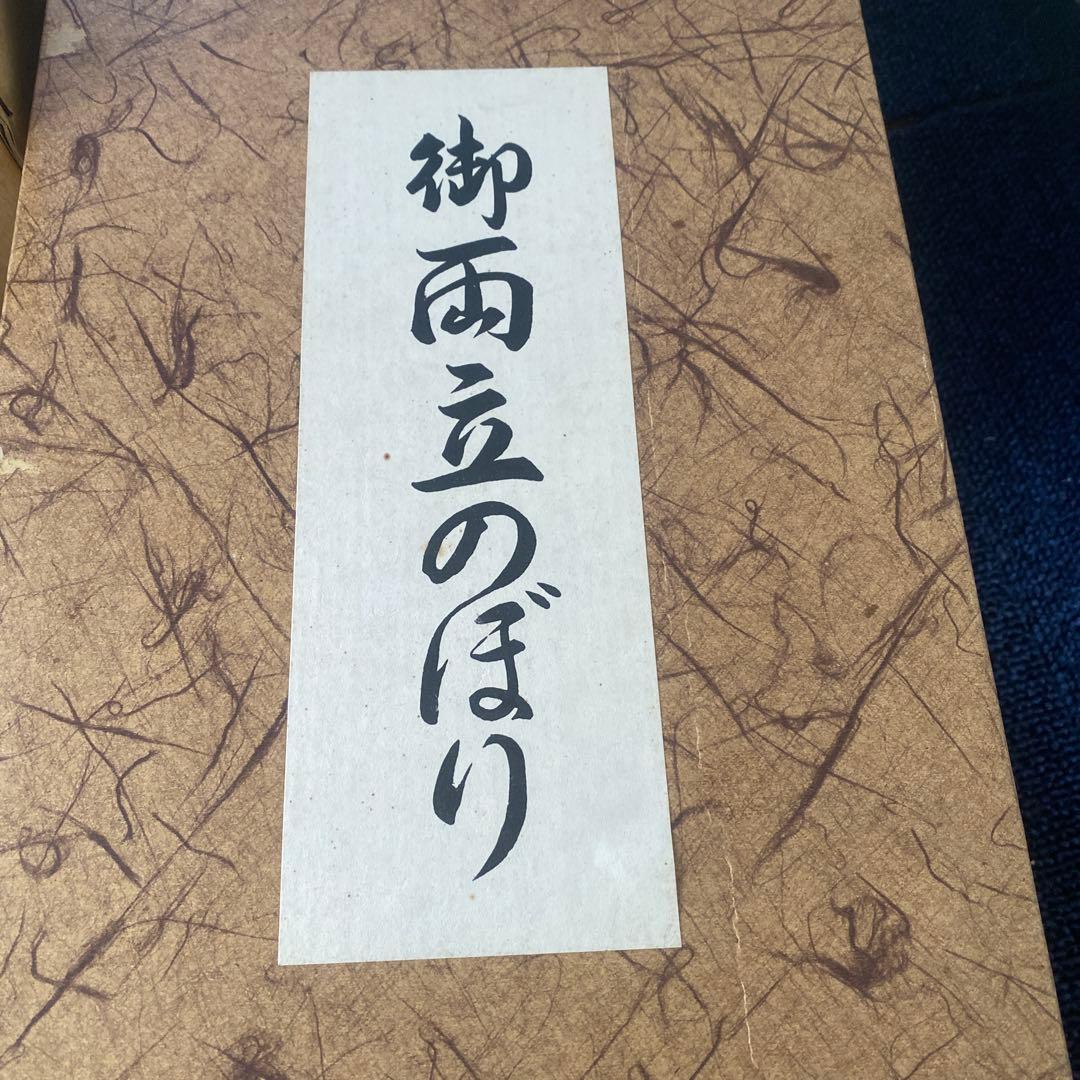 御両立のぼり